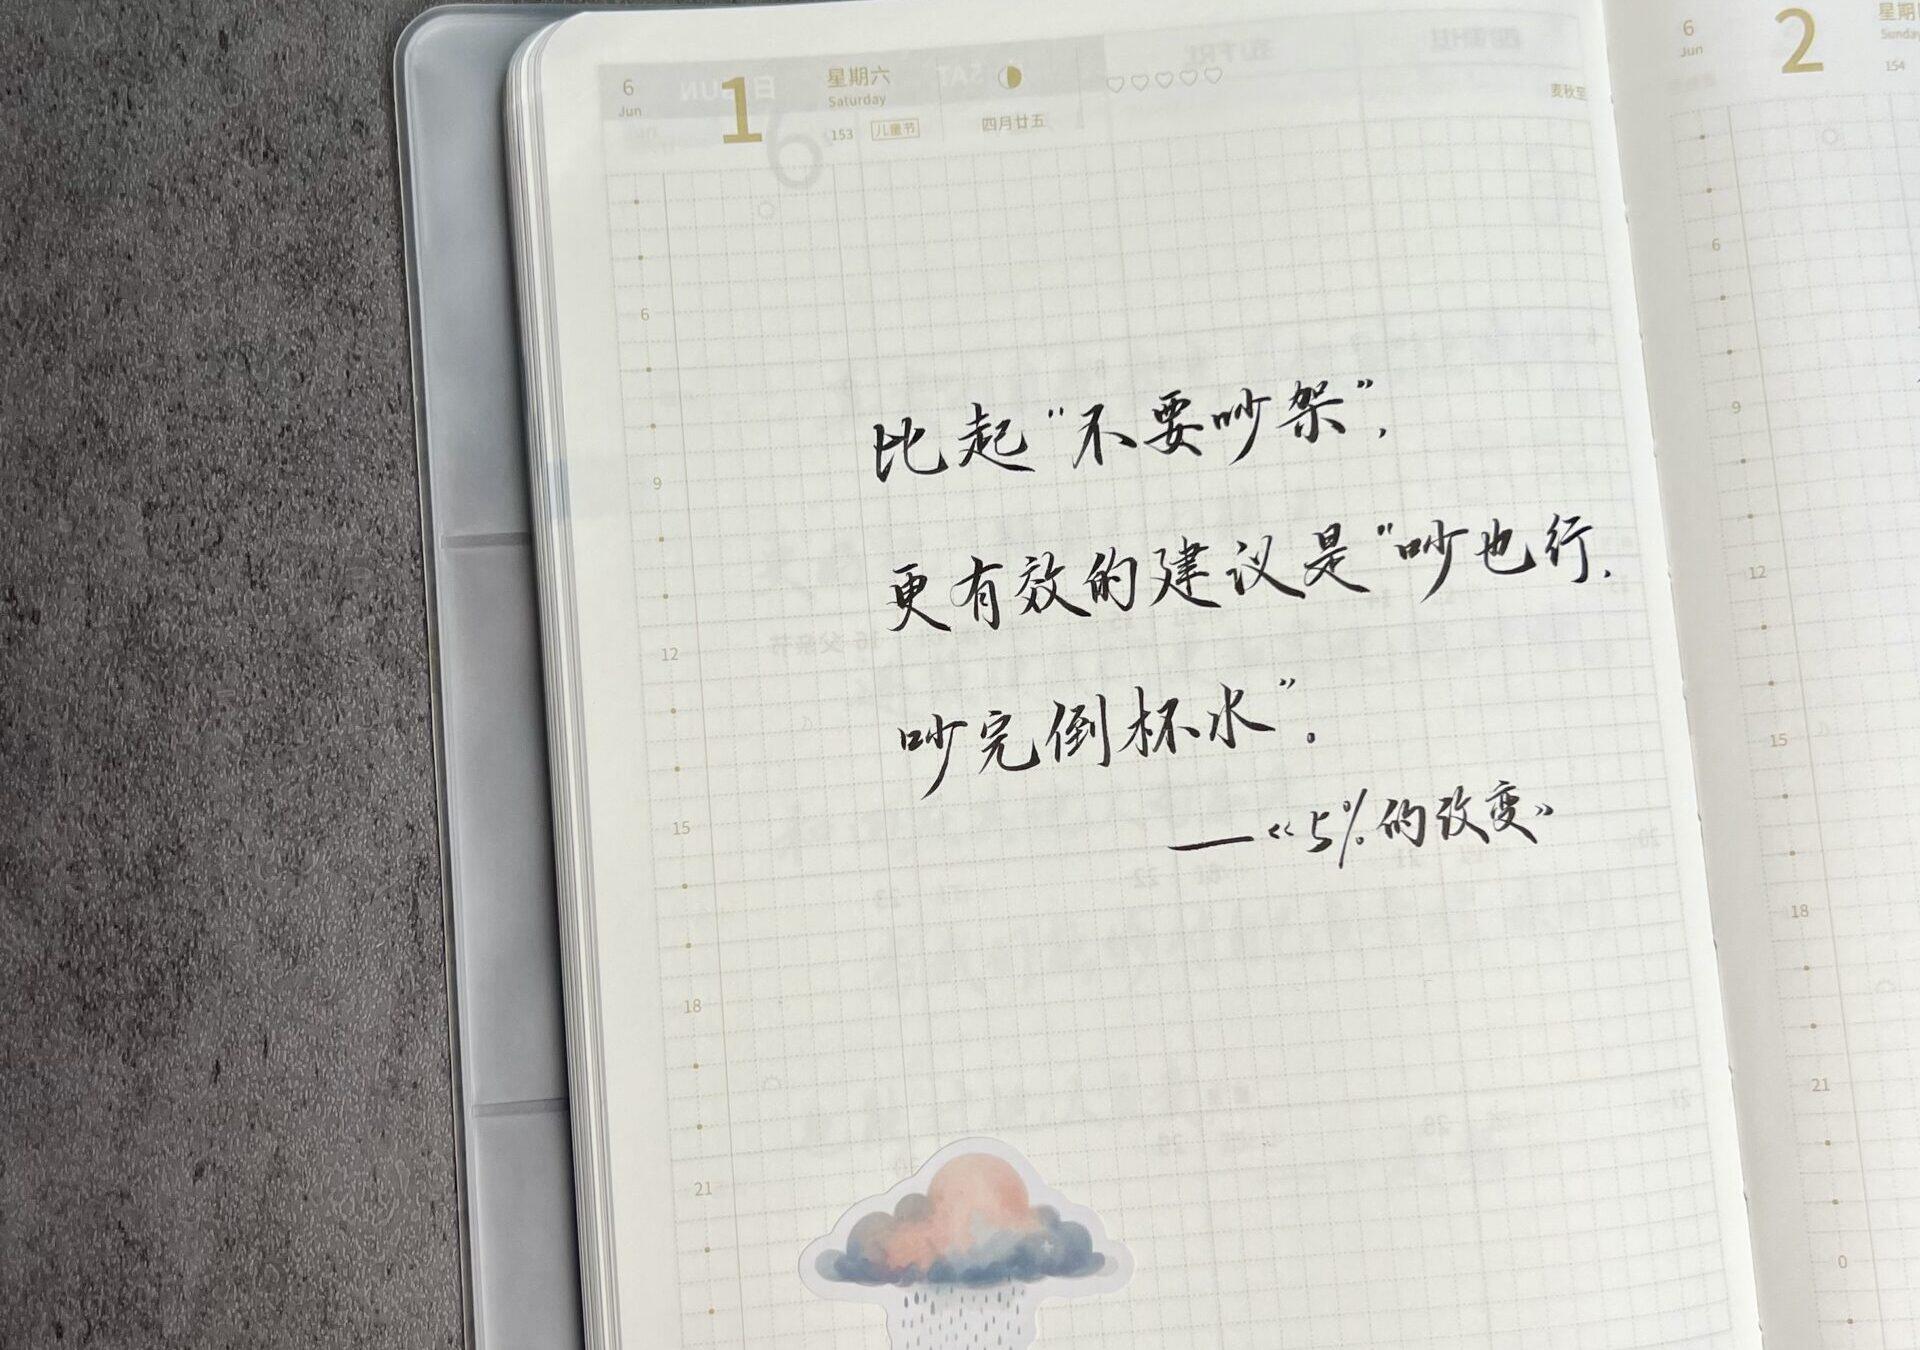 6
Jun
1
星期六
Saturday
153 儿童节
四月廿五
麦秋至
6
9
12
15
18
21
比起“不要吵架”，
更有效的建议是“吵也行，
吵完倒杯水”。
——《5%的改变》
6
Jun
2
星期
Sunday
154
6
9
12
15
18
21
0